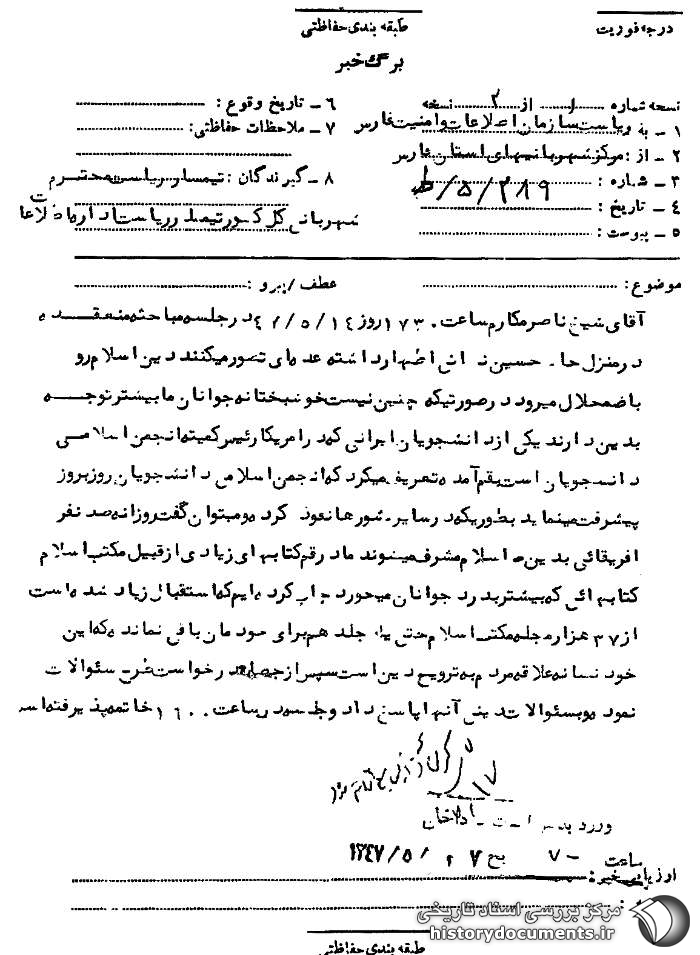 طبقه بندی حفاظتی
درجه فوریت
برگ خبر
نسخه شماره ۱ از ۲ نسخه
۱ - به ریاست سازمان اطلاعات و امنیت فارس
۲ - از : مرکز شهربانیهای استان فارس
۳ - شماره : ۵/۲۸۹/ط
۴ - تاریخ :
۵ - پیوست :
۶ - تاریخ وقوع :
۷ - ملاحظات حفاظتی :
۸ - گیرندگان : تیمسار ریاست محترم
شهربانی کل کشور تیمسار ریاست اداره اطلاعات
موضوع :
عطف / پیرو :
آقای شیخ ناصر مکارم ساعت ۱۷۳۰ روز ۴۷/۵/۱۴ در جلسه مباحثه منعقده
در منزل حاج حسین اظهار داشته عده‌ای تصور میکنند دین اسلام رو
باضمحلال میرود در صورتیکه چنین نیست خوشبختانه جوانان ما بیشتر توجه
بدین دارند یکی از دانشجویان ایرانی که در امریکا رئیس کمیته انجمن اسلامی
دانشجویان است بقم آمده تعریف میکرد که انجمن اسلامی دانشجویان روز بروز
پیشرفت مینماید بطوریکه در سایر کشورها نفوذ کرده و میتوان گفت روزانه صد نفر
افریقائی بدین اسلام مشرف میشوند ما در قم کتابهای زیادی از قبیل مکتب اسلام
کتابهائی که بیشتر بدرد جوانان میخورد چاپ کرده‌ایم که استقبال زیاد شده است
از ۳۷ هزار مجله مکتب اسلام حتی یک جلد هم برای خودمان باقی نمانده که این
خود نشانه علاقه مردم به ترویج دین است سپس از جمعیت درخواست طرح سئوالات
نموده و بسئوالات دینی آنها پاسخ داد و جلسه در ساعت ۱۶۰۰ خاتمه پذیرفته است
ساعت ۷۰
۱۳۴۷/۵/
ارزیابی خبر :
مرکز بررسی اسناد تاریخی
historydocuments.ir
طبقه بندی حفاظتی